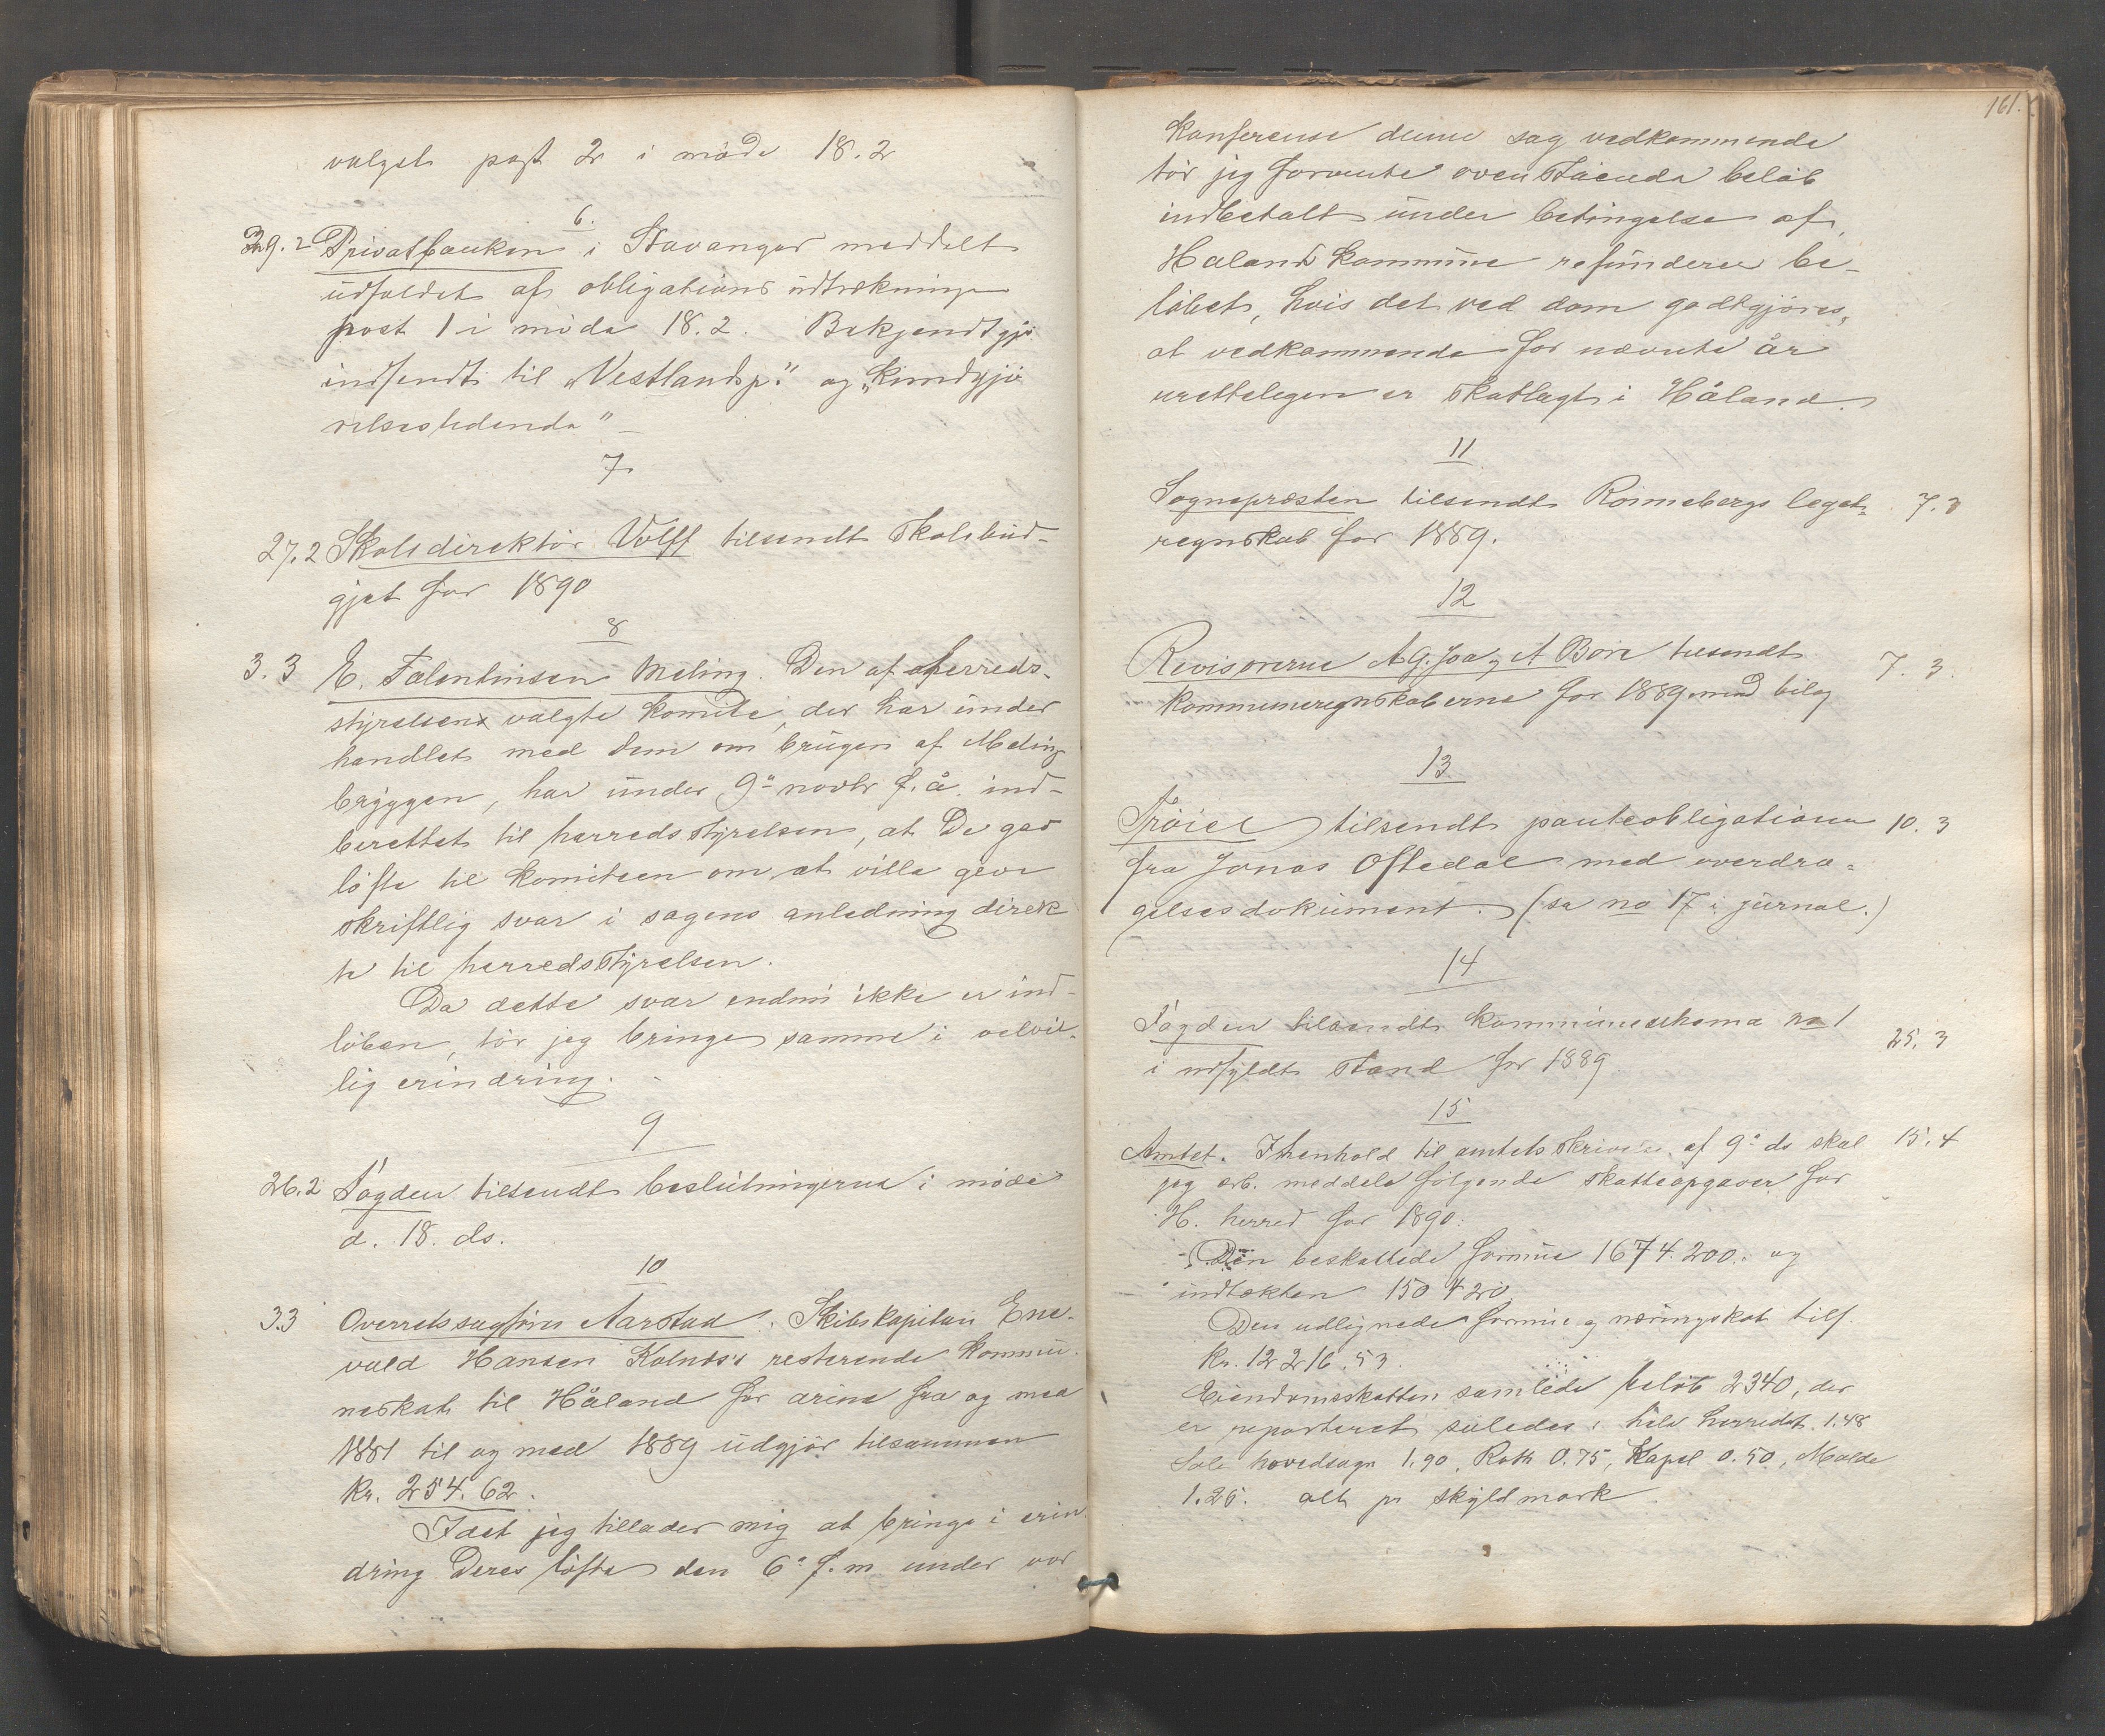 valgets post 2 i møde 18.2
6.
29.2 Privatbanken i Stavanger meddelt
udfaldet af obligations udtrækninge
post 1 i møde 18.2. Bekjendtgjø
indsendt til „Vestlandsp." og „Kundgjø
relsestidende"
7
27.2 Skoledirektør Volff tilsendt skolebud-
gjet for 1890
8
3.3 E. Falentinsen Meling. Den af herreds-
styrelsen valgte komite, der har under
handlet med dem om brugen af Meling
bryggen, har under 9de novbr f. å. ind-
berettet til herredsstyrelsen, at De gav
løfte til komiteen om at ville give
skriftlig svar i sagens anledning direk
te til herredsstyrelsen.
Da dette svar endnu ikke er ind-
løben, tør jeg bringe samme i velvil-
lig erindring.
9
26.2 Fogden tilsendt beslutningerne i møde
d. 18. ds.
10
3.3 Overretssagfører Aarstad. Skibskaptain Ene-
vald Hansen Kolnes's resterende kommu-
neskat til Håland for årene fra og med
1881 til og med 1889 udgjør tilsammen
Kr. 254.62.
Idet jeg tillader mig at bringe i erin
dring Deres løfte den 6te f. m. under vor
161.
konferense denne sag vedkommende
tør jeg forvente ovenstående beløb
indbetalt under betingelse af,
Haland kommune refunderer be-
løbet, hvis det ved dom godtgjøres,
at vedkommende for nævnte år
urettelegen er skatlagt i Håland.
11
Sognepræsten tilsendt Rosnnebergs legat- 7.3
regnskab for 1889.
12
Revisorerne A G. Joa og A Bore tilsendt 7.3.
kommuneregnskaberne for 1889 med bilag
13
Frøiel tilsendt panteobligationen 10.3
fra Jonas Oftedal med overdra-
gelsesdokument. (se no 17 i jurnal.)
14
Fogden tilsendt kommuneskema no 1 25.3
i udfyldt stand for 1889
15
Amtet. I henhold til amtets skrivelse af 9de ds skal 15.4
jeg ærb. meddele følgende skatteopgaver for
H. herred for 1890:
Den beskattede formue 1674.200.. og
indtækten 150420
Den udlignede formue og næringskat tils.
Kr. 12216.53.
Eiendomsskatten samlede beløb 2340, der
er reparteret således: hele herredet 1.48
Sole hovedsogn 1.90, Roth 0.75, Kapel 0.50, Malde
1.25. alt pr skyldmark